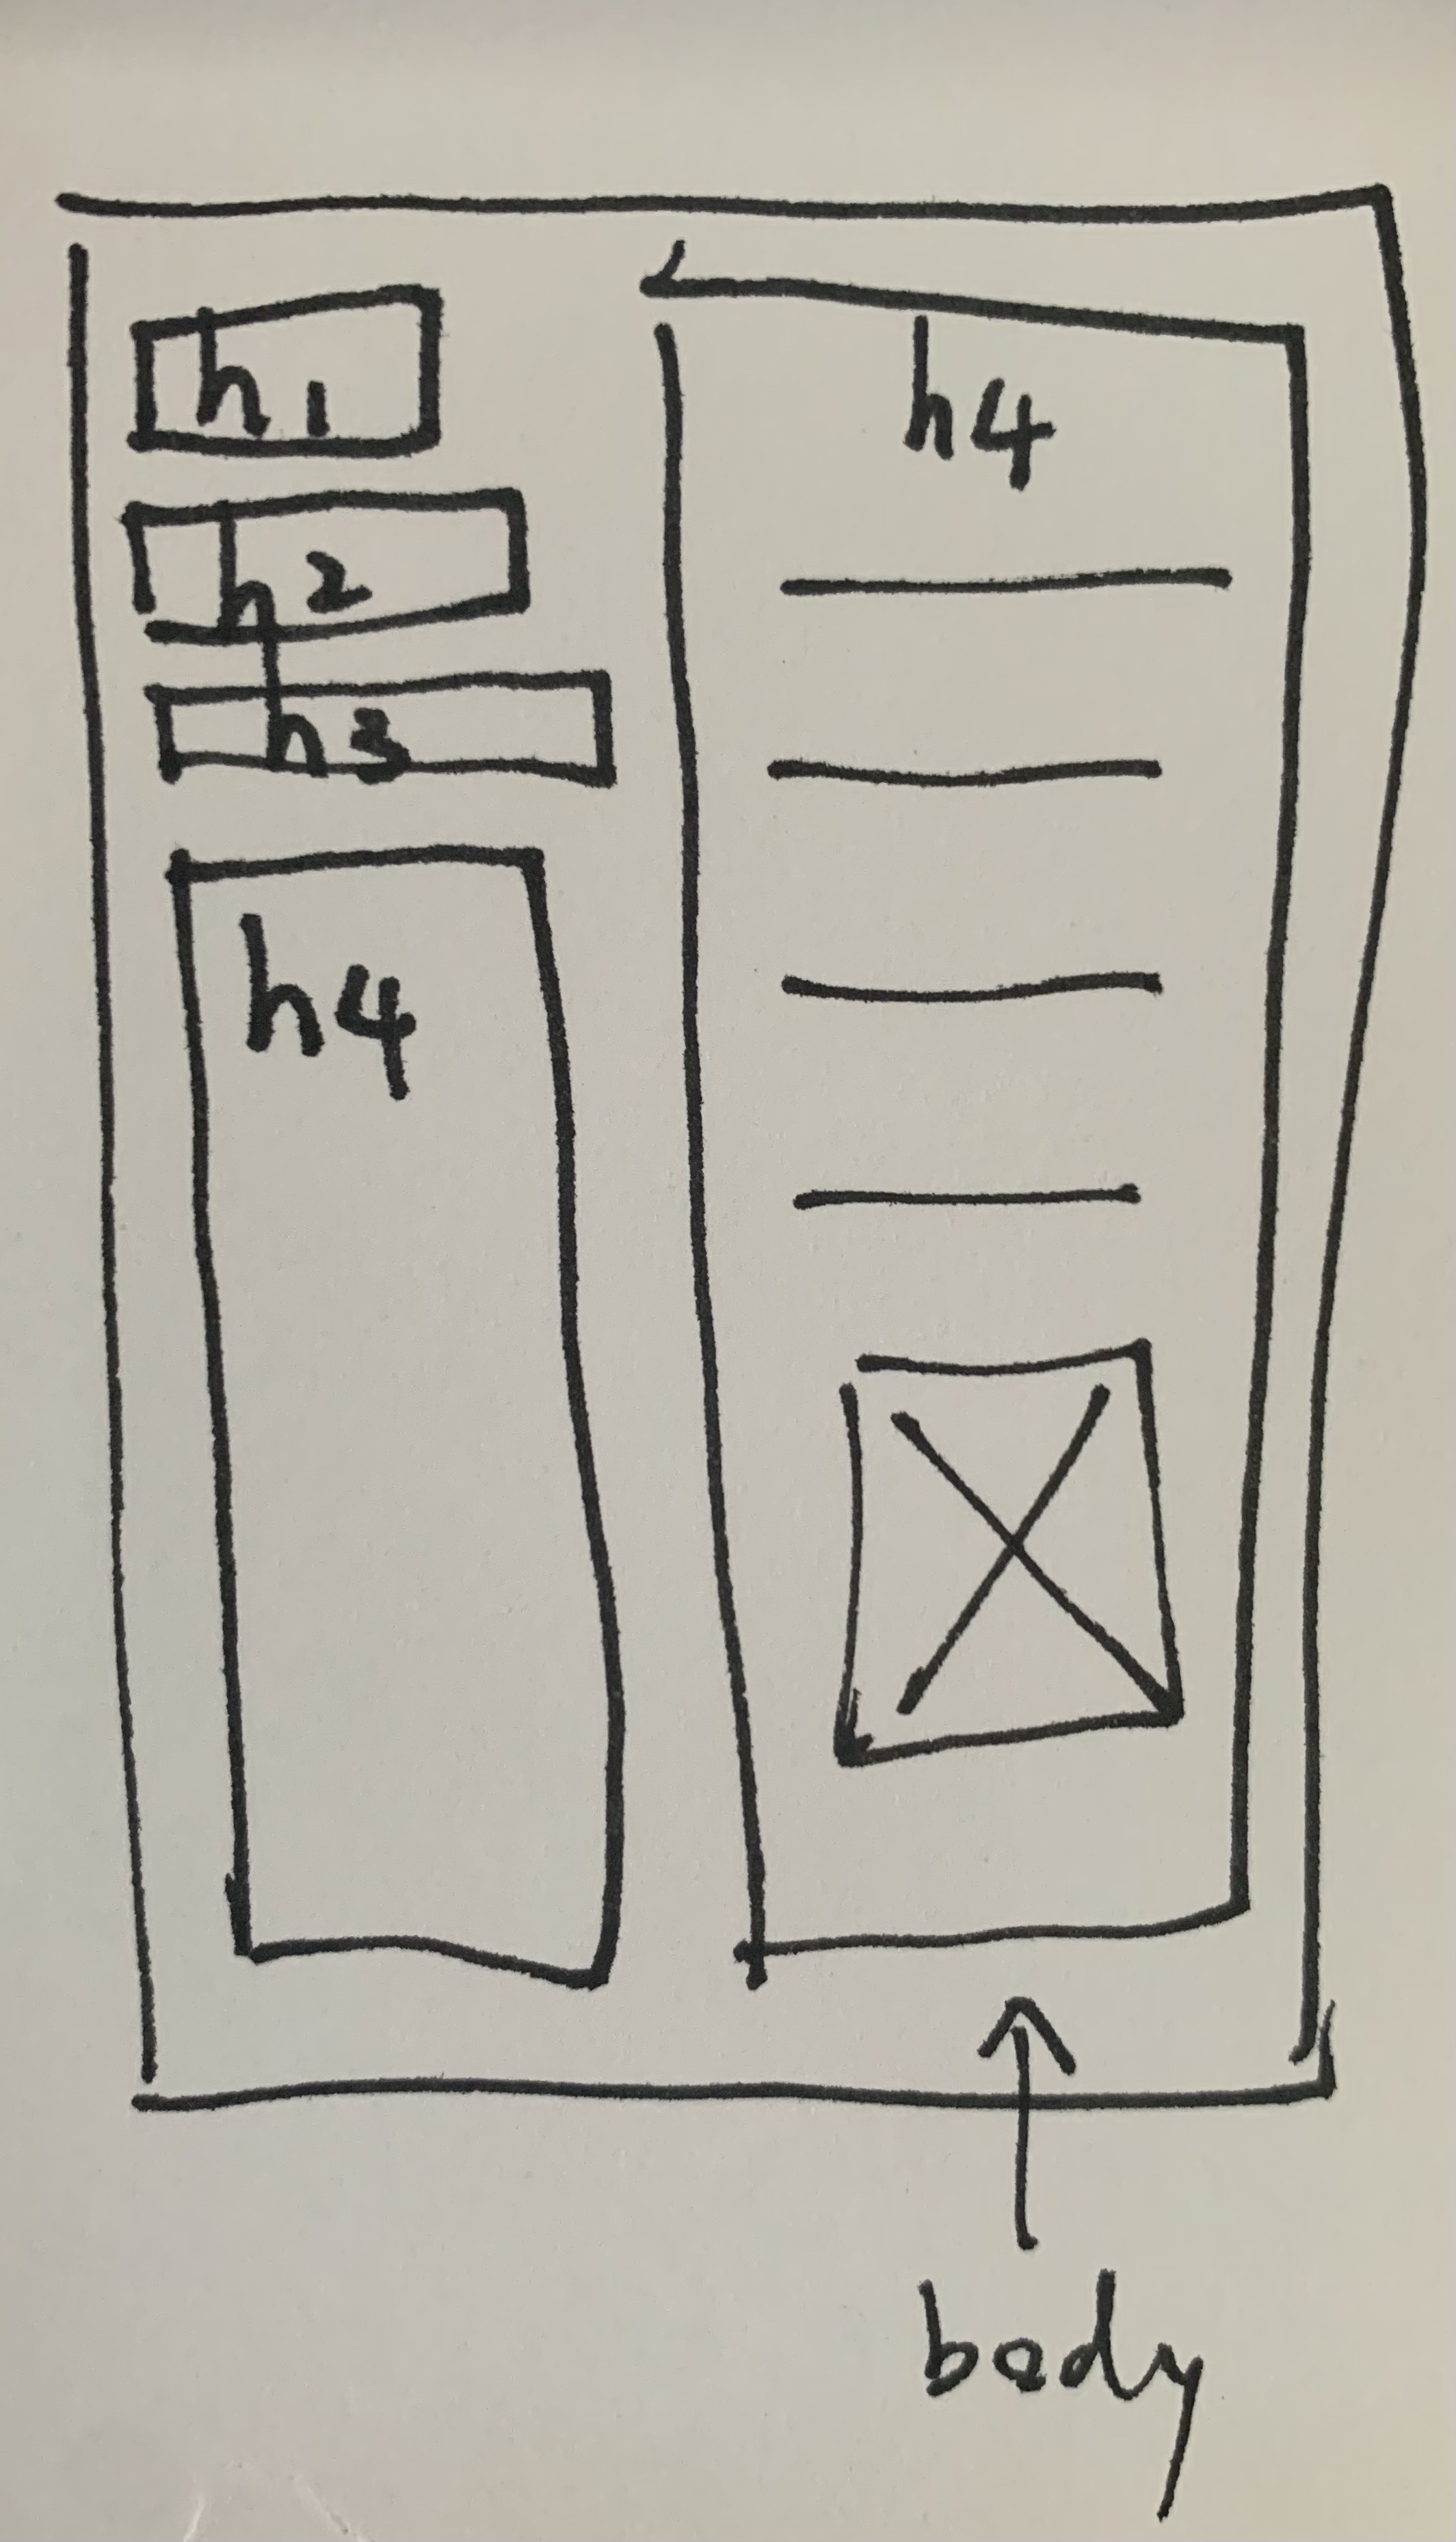 h1
h2
h3
h4
h4
body